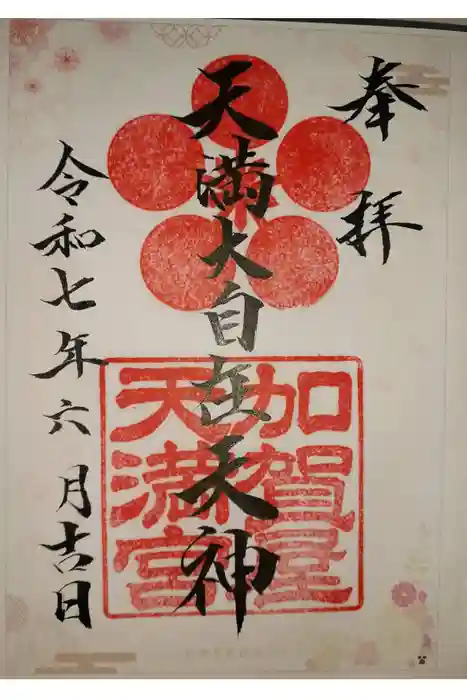 奉拝
天満大自在天神
令和七年六月吉日
加賀屋
天満宮